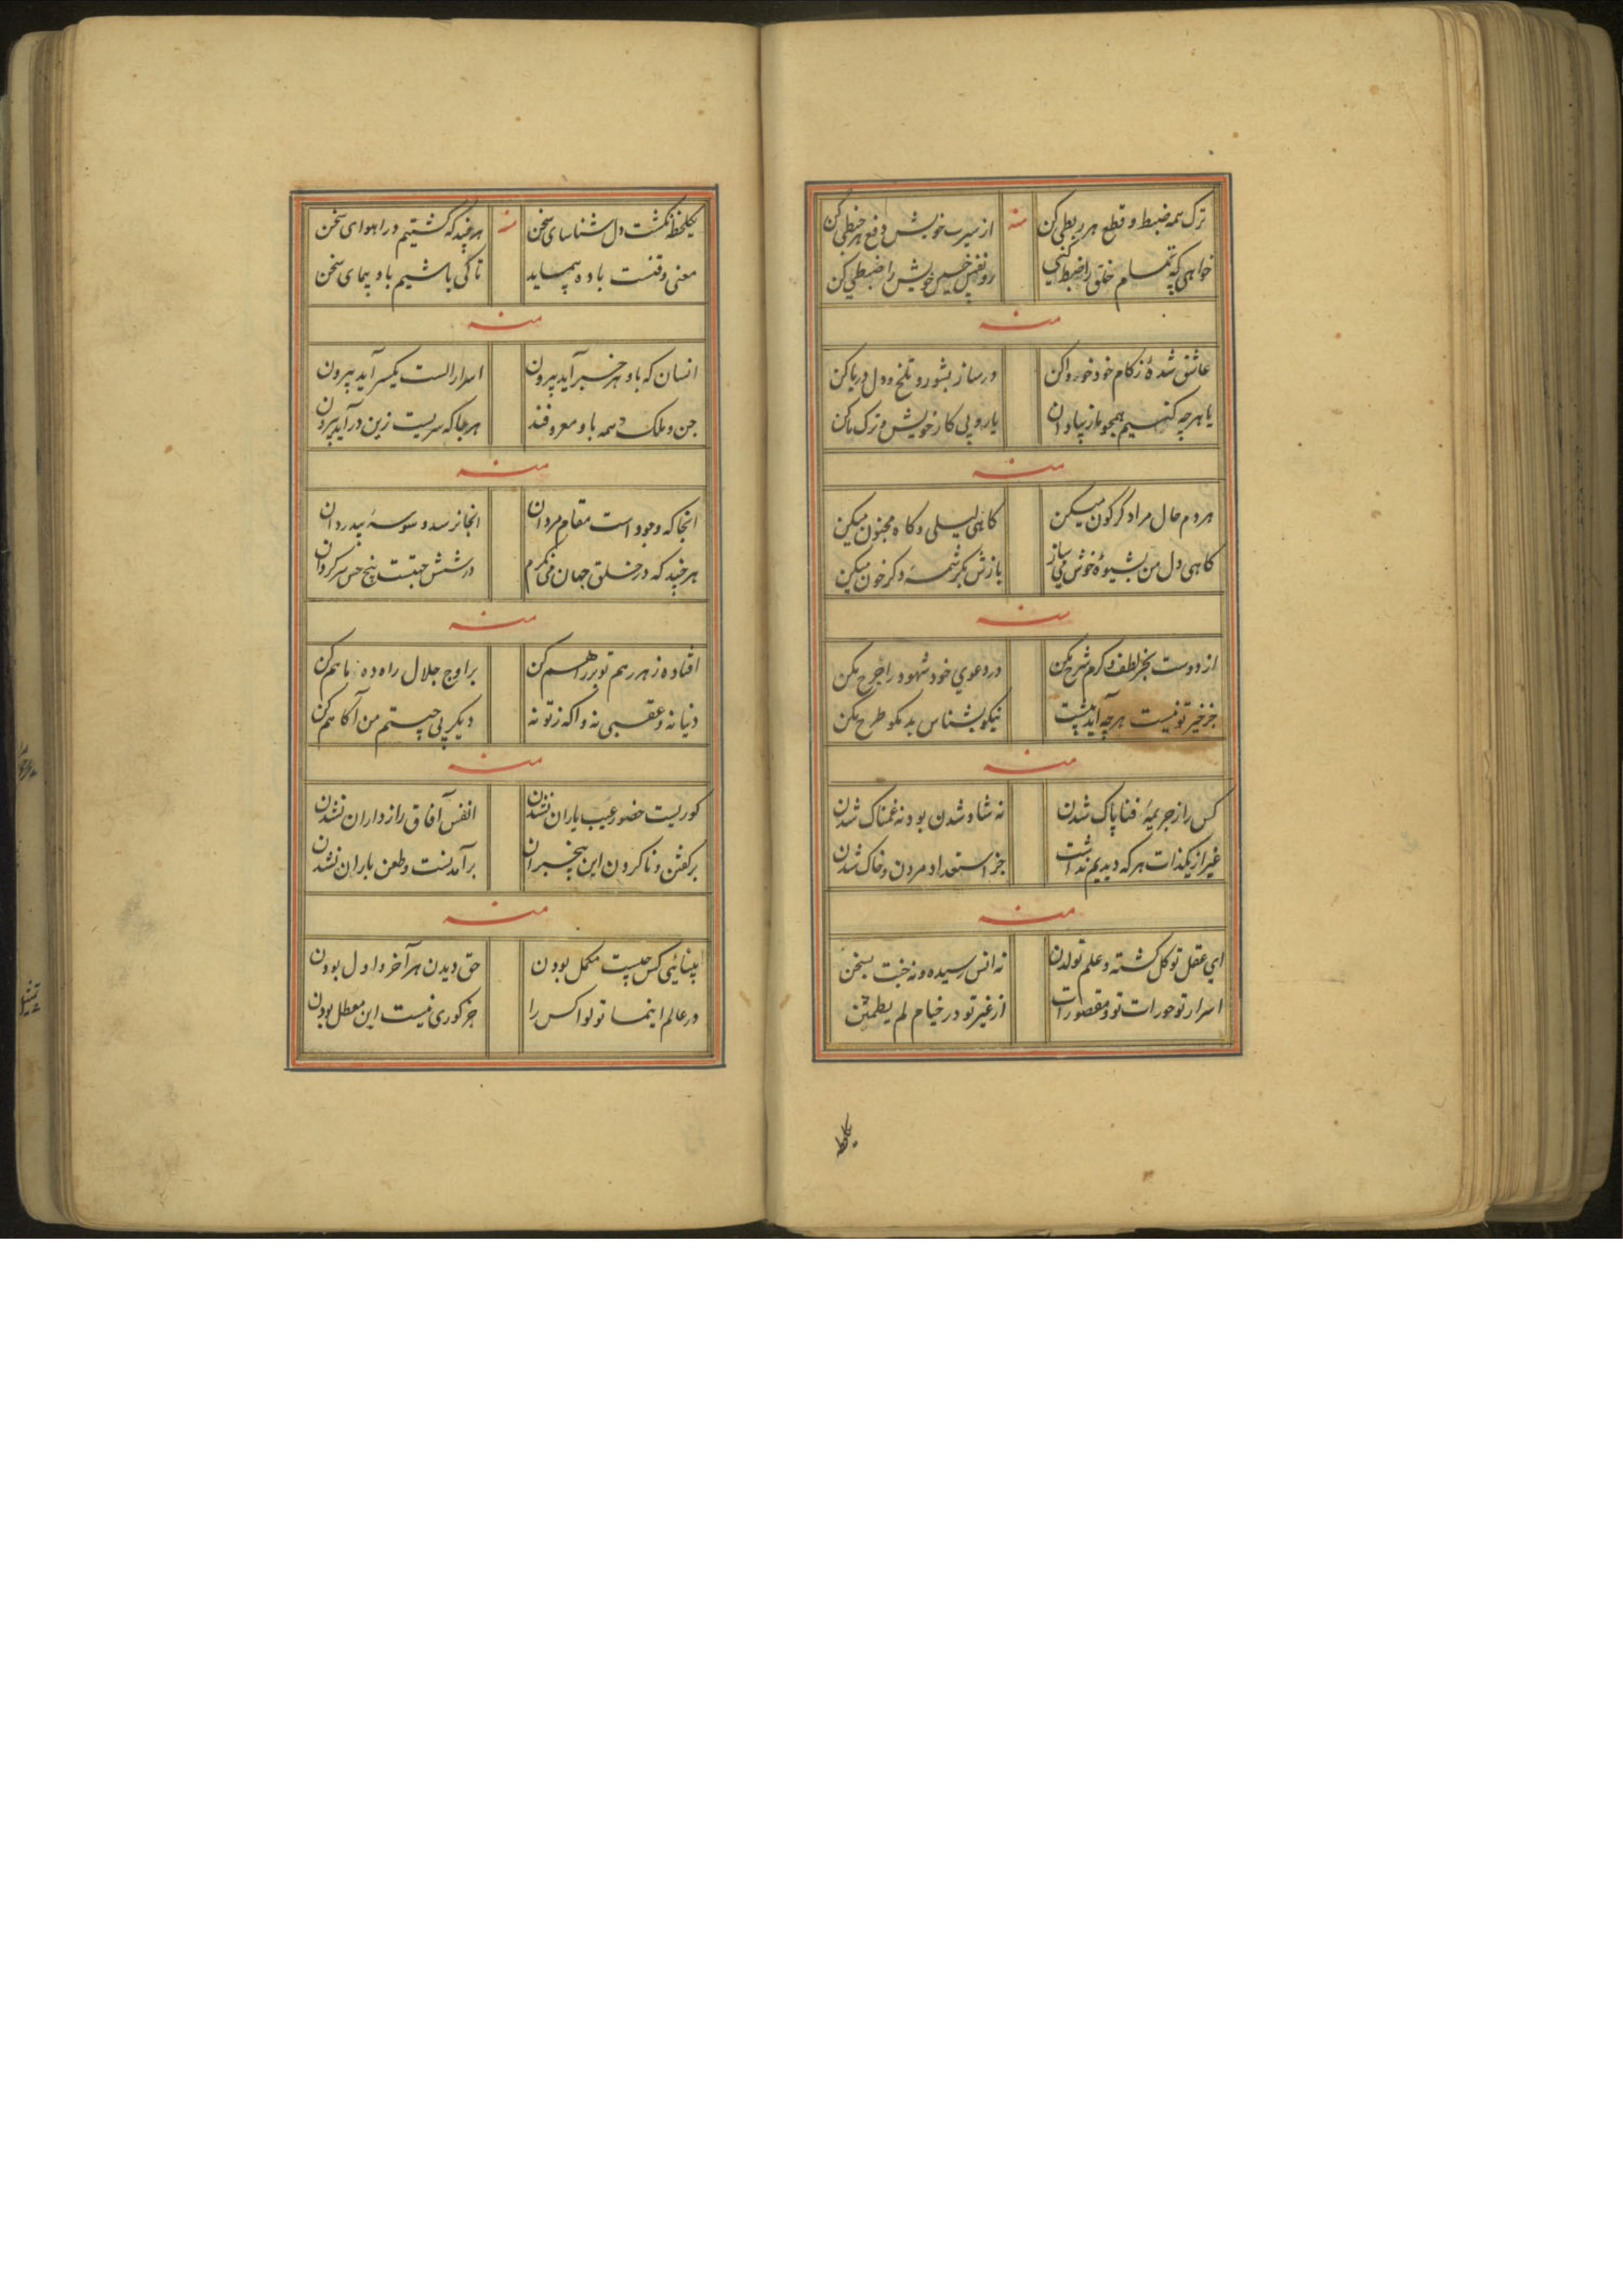 ترک همه ضبط و قطع هر ربطی کن
منه
از سیرت خویش دفع هر خبطی کن
خواهی که تمام خلق را ضبط کنی
رو نفس خسیس خویش را ضبطی کن
منه
عاشق شدهٔ ز کام خود خود واکن
در ساز بشور و تلخ و دل دریا کن
یا هرچه کنیم همچو ما زیبا دان
یا رو پی کار خویش و ترک ما کن
منه
هر دم حال مرا دگرگون میکن
گاهی لیلی و گاه مجنون میکن
گاهی دل من بشیوهٔ خوش می ساز
بازش بکرشمهٔ دگر خون میکن
منه
از دوست بجز لطف و کرم شرح مکن
در دعوی خود شهود را جرح مکن
جز خیر تو نیست هرچه آید پیشت
نیکو بشناس بد مگو طرح مکن
منه
کس را ز جریمهٔ فنا پاک شدن
نه شاد شدن بود نه غمناک شدن
غیر از یکذات هر که دیدیم نداشت
جز استعداد مردن و خاک شدن
منه
ای عقل تو کل گشته و علم تو لدن
نه انس رسیده و نه جنت بسخن
اسرار تو حورات تو و مقصورات
از غیر تو در خیام لم یطمثن
یکلحظه
یکلحظه نگشت دل شناسای سخن
منه
هرچند که گشتیم در اهوای سخن
معنی وقتست باده پیماید
تا کی باشیم باد پیمای سخن
منه
انسان که باو هر خبر آید بیرون
اسرار الست یکسر آید بیرون
جن و ملک و همه باو معروفند
هر جا که سریست زین در آید بیرون
منه
آنجا که وجود است مقام مردان
آنجا نرسد وسوسهٔ بیدردان
هرچند که در خلق جهان می نگرم
در شش جهتست پنج حس سرگردان
منه
افتاده ز هر رهم تو بر راهم کن
بر اوج جلال راه ده با هم کن
دنیا نه و عقبی نه و آگه ز تو نه
دیگر پی چیستم من آگاهم کن
منه
کوریست حضور عیب یاران نشدن
انفس آفاق رازداران نشدن
بر گفتن و نا کردن این بیخبران
برآمدنست و طعن باران نشدن
منه
بینائی کس چیست مکمل بودن
حق دیدن هر آخر و اول بودن
در عالم اینما تولوا کس را
جز کوری نیست این معطل بودن